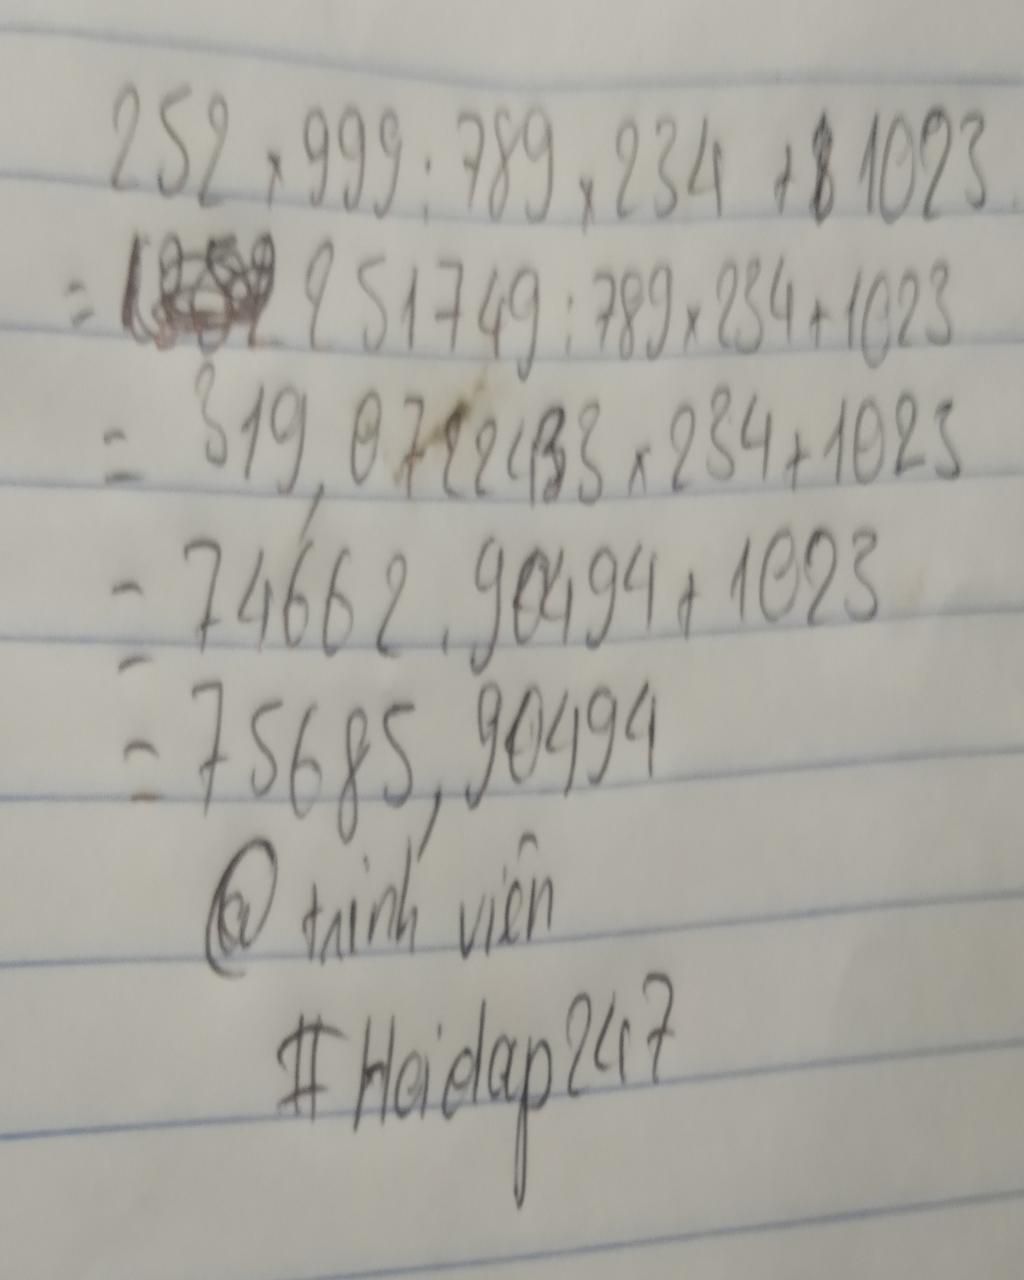 252 x 999 : 789 x 234 + 1023
= 251749 : 789 x 234 + 1023
= 319,0722433 x 234 + 1023
= 74662.90494 + 1023
= 75685,90494
@ trinh viên
#Hoidap247